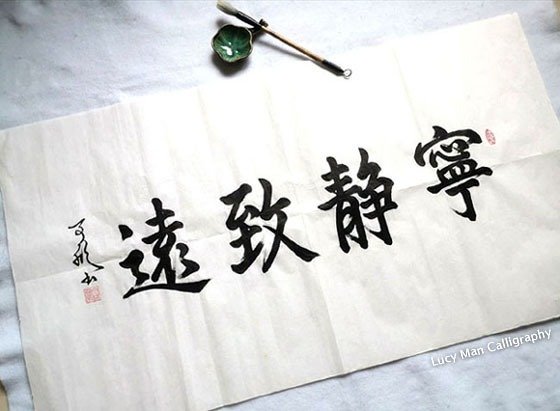 寧靜致遠
Lucy Man Calligraphy